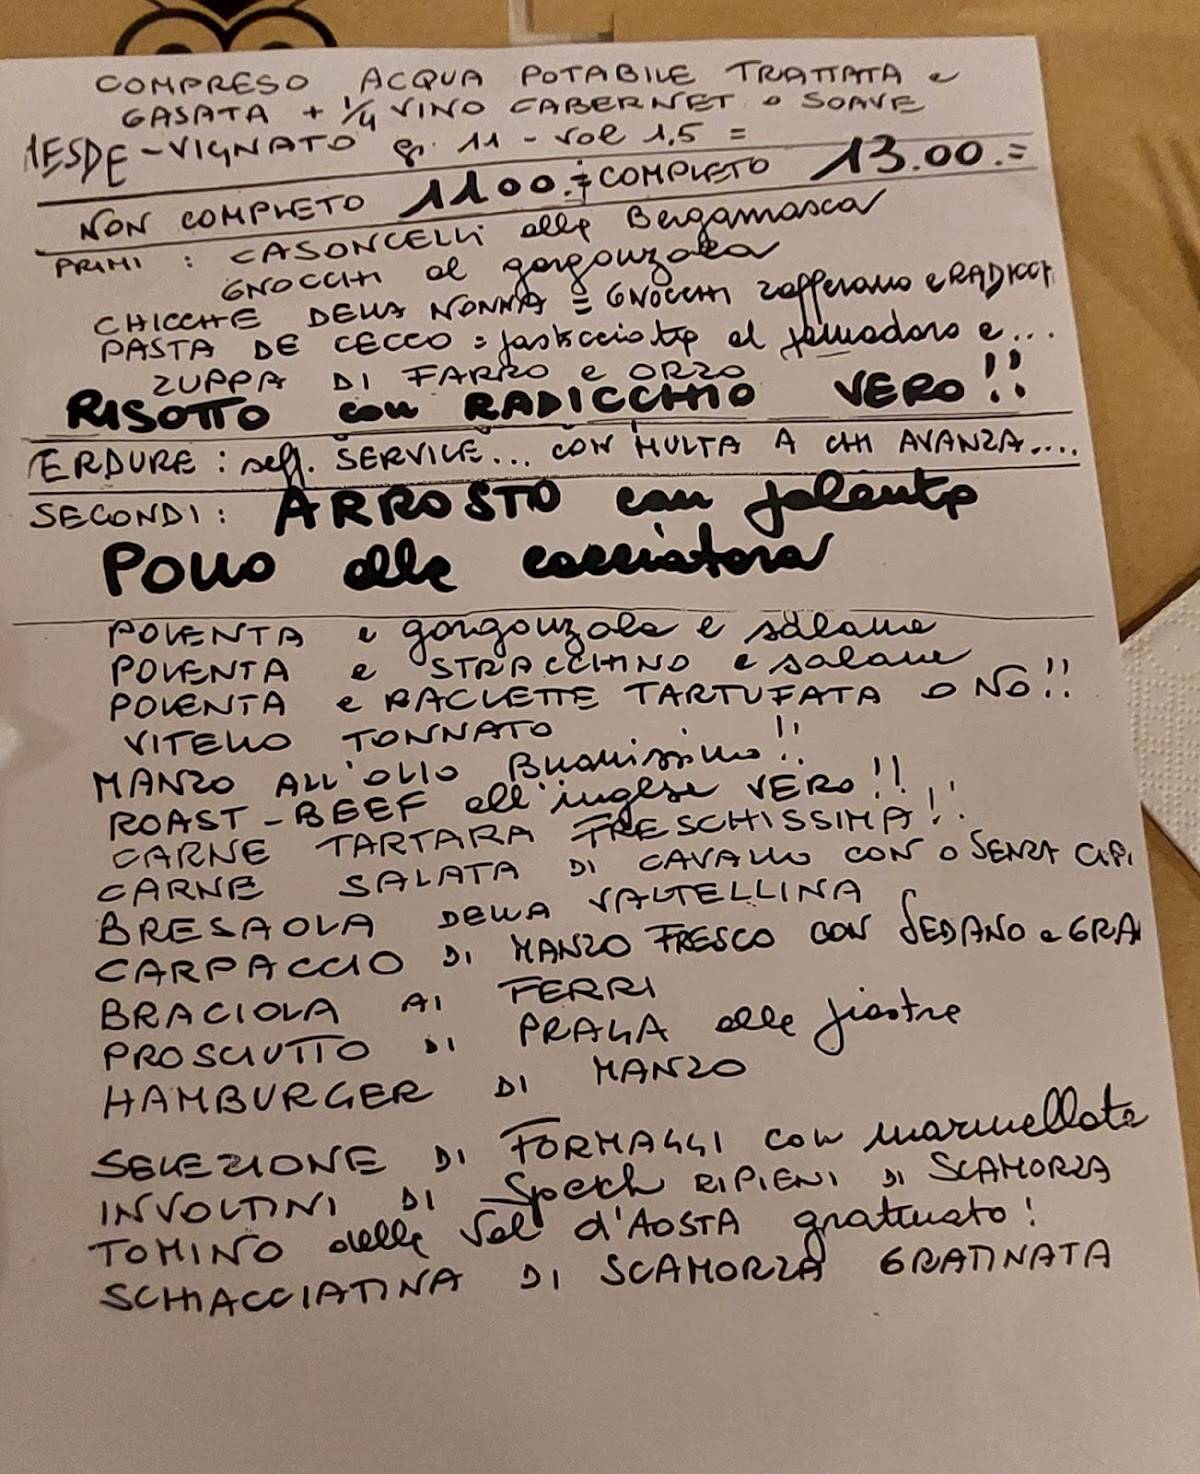 COMPRESO ACQUA POTABILE TRATTATA e
GASATA + 1/4 VINO CABERNET o SOAVE
MESDE-VIGNATO gr. 11 - vol 1,5 =
NON COMPLETO 1100.= COMPLETO 13.00.=
PRIMI : CASONCELLI alla Bergamasca
GNOCCHI al gorgonzola
CHICCHE DELLA NONNA = GNOCCHI zafferano e RADICCH
PASTA DE CECCO = pasticciata al pomodoro e...
ZUPPA DI FARRO e ORZO
RISOTTO con RADICCHIO VERO!!
ERDURE : self. SERVICE... CON MULTA A CHI AVANZA....
SECONDI : ARROSTO con polenta
POLLO alla cacciatora
POLENTA e gorgonzola e salame
POLENTA e STRACCHINO e salame
POLENTA e RACLETTE TARTUFATA o NO!!
VITELLO TONNATO
MANZO ALL'OLIO Buonissimo!!
ROAST-BEEF all'inglese VERO!!
CARNE TARTARA FRESCHISSIMA!!
CARNE SALATA DI CAVALLO CON o SENZA CIPI
BRESAOLA DELLA VALTELLINA
CARPACCIO DI MANZO FRESCO CON SEDANO e GRA
BRACIOLA AI FERRI
PROSCIUTTO DI PRAGA alla piastra
HAMBURGER DI MANZO
SELEZIONE DI FORMAGGI con marmellata
INVOLTINI DI Speck RIPIENI DI SCAMORZA
TOMINO della Val d'AOSTA grattinato!
SCHIACCIATINA DI SCAMORZA GRATINATA